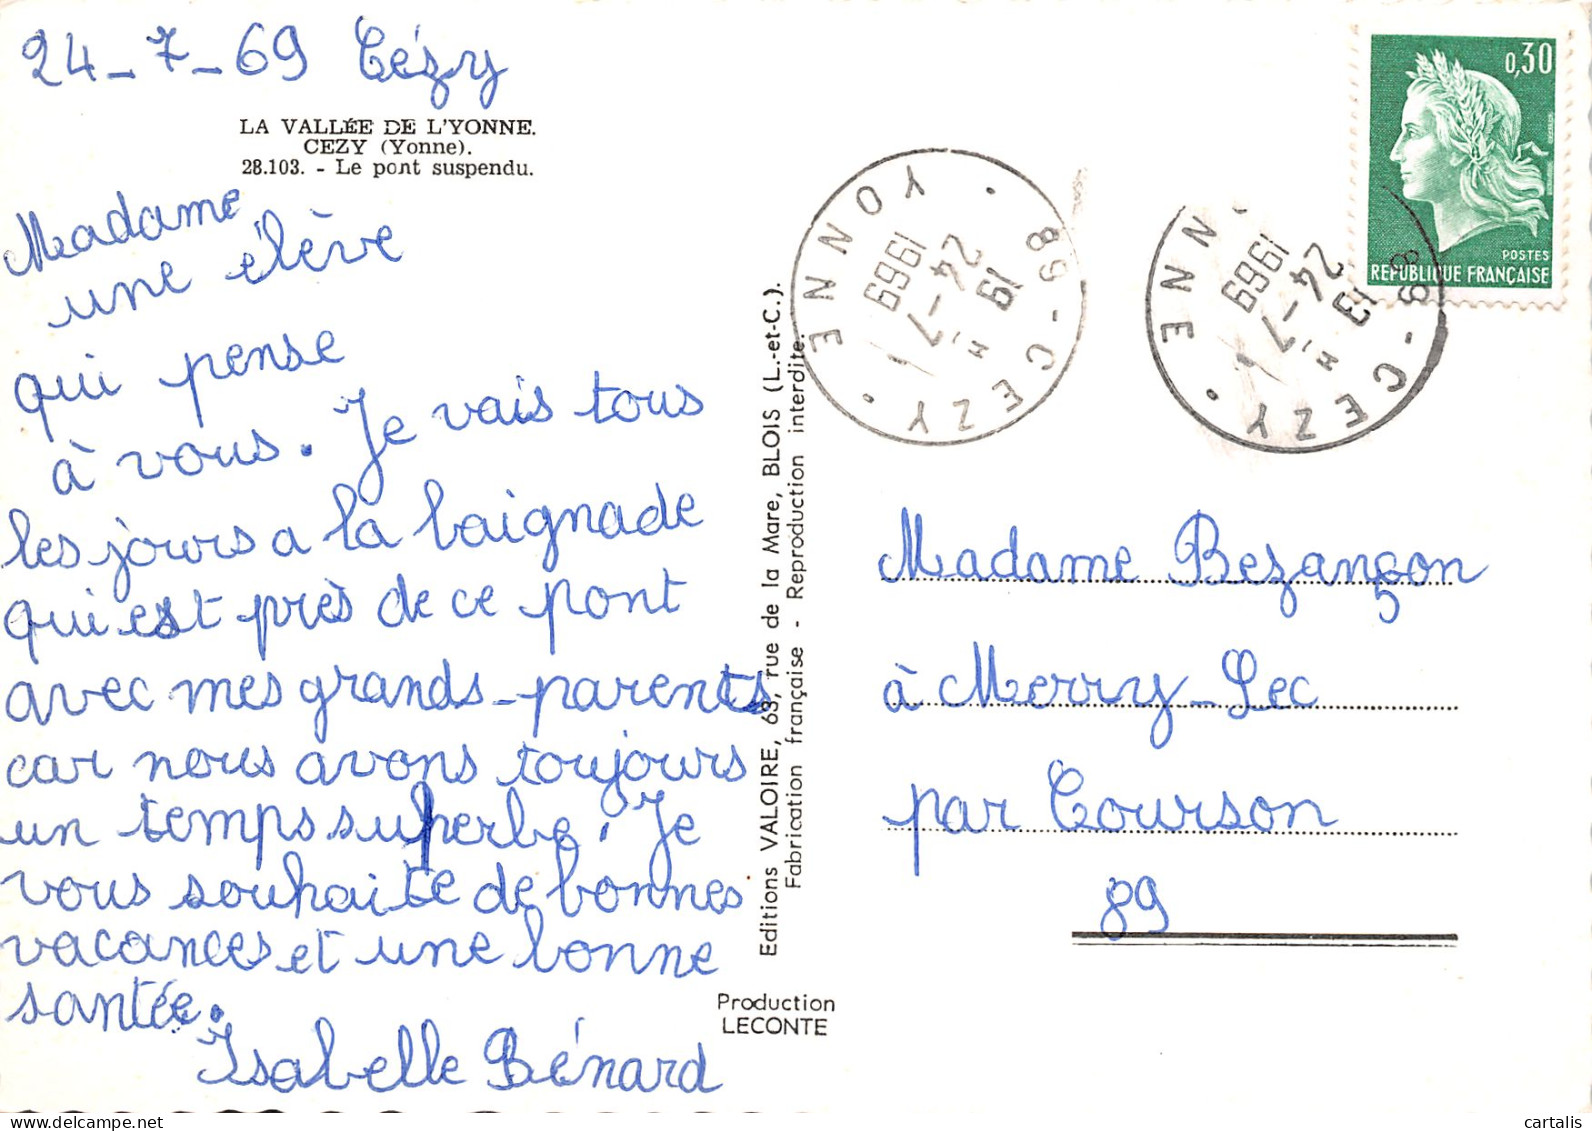 24-7-69 Cézy
LA VALLÉE DE L'YONNE.
CEZY (Yonne).
28.103. - Le pont suspendu.
Madame
une élève
qui pense
à vous. Je vais tous
les jours a la baignade
qui est près de ce pont
avec mes grands-parents
car nous avons toujours
un temps superbe. Je
vous souhaite de bonnes
vacances et une bonne
santée.
Isabelle Bénard
Editions VALOIRE, 63, rue de la Mare, BLOIS (L.-et-C.).
Fabrication française - Reproduction interdite.
Production
LECONTE
89 - CEZY • YONNE •
19 H
24 - 7
1969
89 - CEZY • YONNE
19 H
24 - 7
1969
0,30
POSTES
REPUBLIQUE FRANÇAISE
Madame Bezançon
à Merry-Sec
par Courson
89
cartalis